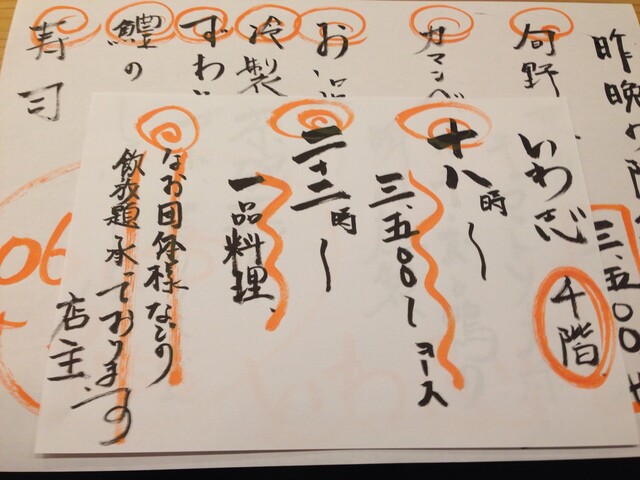 昨晩の
三、五〇〇
旬野
カマンベ
お
冷製
ずわい
鰹の
寿司
いわ志
4階
十八時〜
三、五〇〇〜コース
二十二時〜
一品料理、
なお団体様なりの
飲放題承っております
店主、